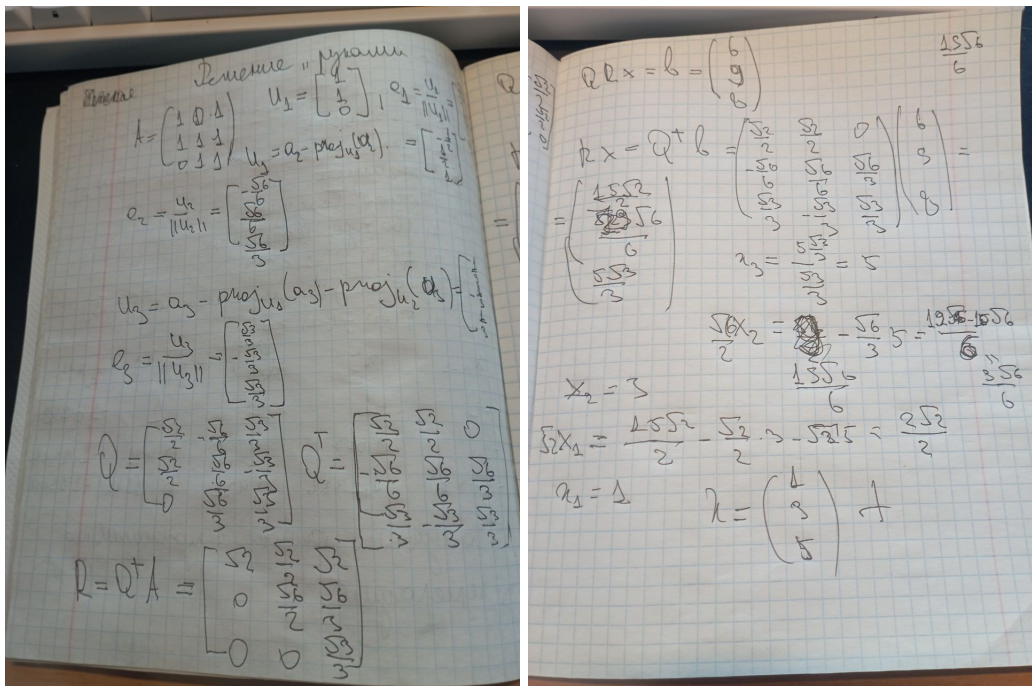 Решение "руками
A = (1 0 1; 1 1 1; 0 1 1) u₁ = [1; 1; 0], e₁ = u₁/||u₁|| =
u₂ = a₂ - proj_u₁(a₂) =
e₂ = u₂/||u₂|| = [-√6/6; √6/6; √6/3]
u₃ = a₃ - proj_u₁(a₃) - proj_u₂(a₃) =
e₃ = u₃/||u₃|| = [√3/3; -√3/3; √3/3]
Q = [√2/2 -√6/6 √3/3; √2/2 √6/6 -√3/3; 0 √6/3 √3/3] Qᵀ = [√2/2 √2/2 0; -√6/6 √6/6 √6/3; √3/3 -√3/3 √3/3]
R = QᵀA = [√2 √2/2 √2; 0 √6/2 √6/3; 0 0 √3/3]
QRx = b = (6; 9; 8)
15√6/6
Rx = Qᵀb = (√2/2 √2/2 0; -√6/6 √6/6 √6/3; √3/3 -√3/3 √3/3)(6; 9; 8) =
= (15√2/2; √6/6; 5√3/3)
x₃ = (5√3/3)/(√3/3) = 5
√6/2 x₂ = - √6/3 5 = =
15√6/6
3√6/6
x₂ = 3
√2x₁ = 15√2/2 - √2/2 · 3 - √2 5 = 2√2/2
x₁ = 1 x = (1; 3; 5)